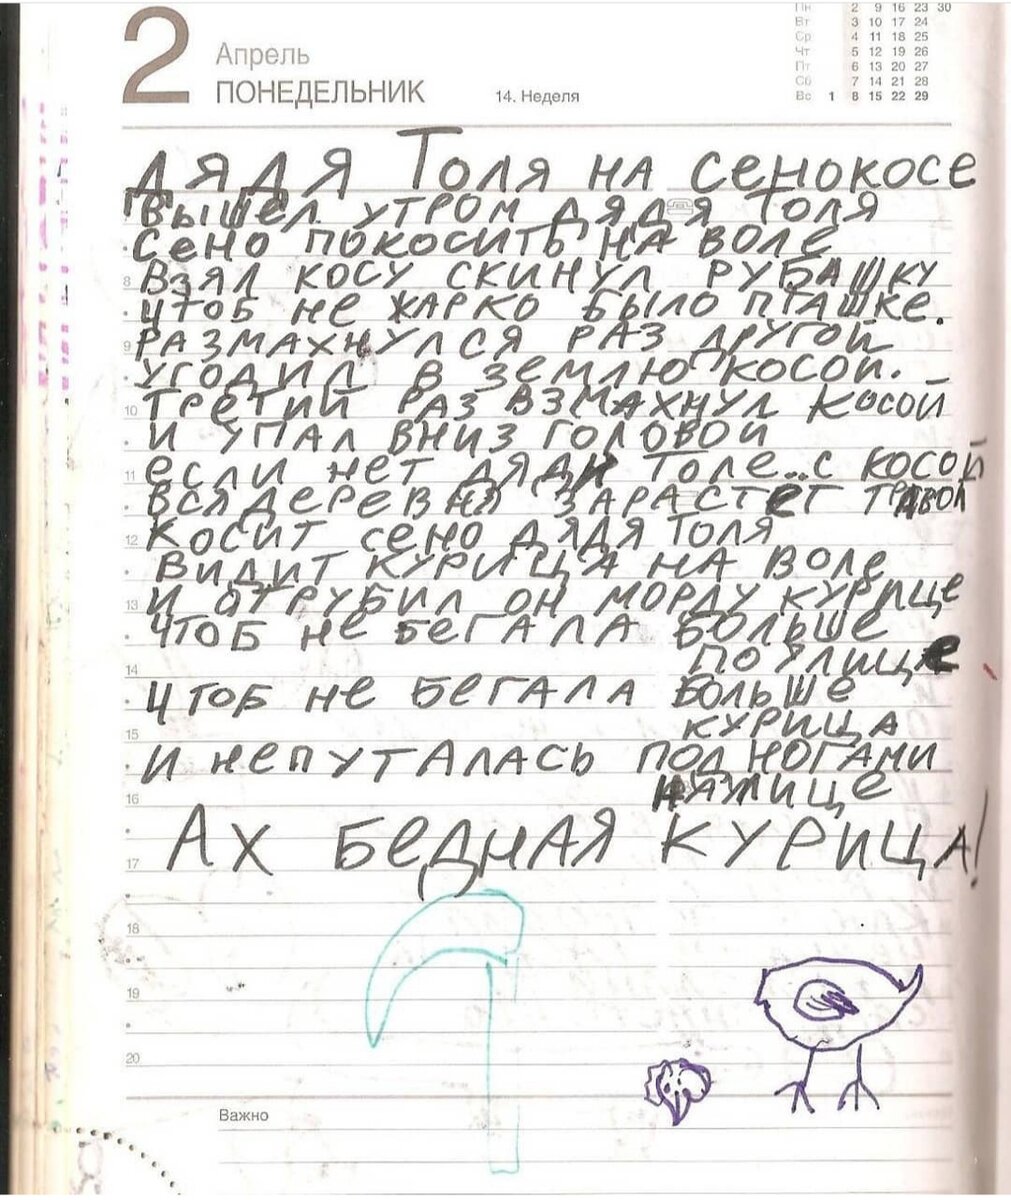 2
Апрель
ПОНЕДЕЛЬНИК
14. Неделя
Пн 2 9 16 23 30
Вт 3 10 17 24
Ср 4 11 18 25
Чт 5 12 19 26
Пт 6 13 20 27
Сб 7 14 21 28
Вс 1 8 15 22 29
ДЯДЯ ТОЛЯ НА СЕНОКОСЕ
ВЫШЕЛ УТРОМ ДЯДЯ ТОЛЯ
СЕНО ПОКОСИТЬ НА ВОЛЕ
8 ВЗЯЛ КОСУ СКИНУЛ РУБАШКУ
ЧТОБ НЕ ЖАРКО БЫЛО ПТАШКЕ.
9 РАЗМАХНУЛСЯ РАЗ ДРУГОЙ
УГОДИЛ В ЗЕМЛЮ КОСОЙ.
10 ТРЕТИЙ РАЗ ВЗМАХНУЛ КОСОЙ
И УПАЛ ВНИЗ ГОЛОВОЙ
11 ЕСЛИ НЕТ ДЯДИ ТОЛЕ.. С КОСОЙ
ВСЯ ДЕРЕВНЯ ЗАРАСТЕТ ТРАВОЙ
12 КОСИТ СЕНО ДЯДЯ ТОЛЯ
ВИДИТ КУРИЦА НА ВОЛЕ
13 И ОТРУБИЛ ОН МОРДУ КУРИЦЕ
ЧТОБ НЕ БЕГАЛА БОЛЬШЕ
ПО УЛИЦЕ
14 ЧТОБ НЕ БЕГАЛА БОЛЬШЕ
КУРИЦА
15 И НЕПУТАЛАСЬ ПОД НОГАМИ
16 НАУЛИЦЕ
АХ БЕДНАЯ КУРИЦА!
17
18
19
20
Важно